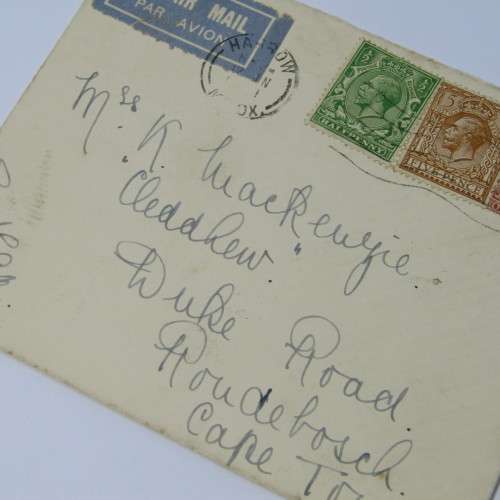 AIR MAIL
PAR AVION
HARROW
HALFPENNY
FIVE PENCE
Mrs K. Mackenzie.
"Cleddhew"
Duke Road.
Rondebosch.
Cape To